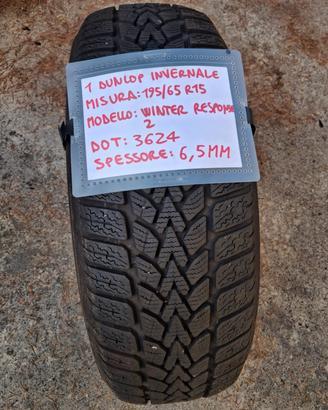 1 DUNLOP INVERNALE
MISURA: 195/65 R15
MODELLO: WINTER RESPONSE
2
DOT: 3624
SPESSORE: 6,5MM